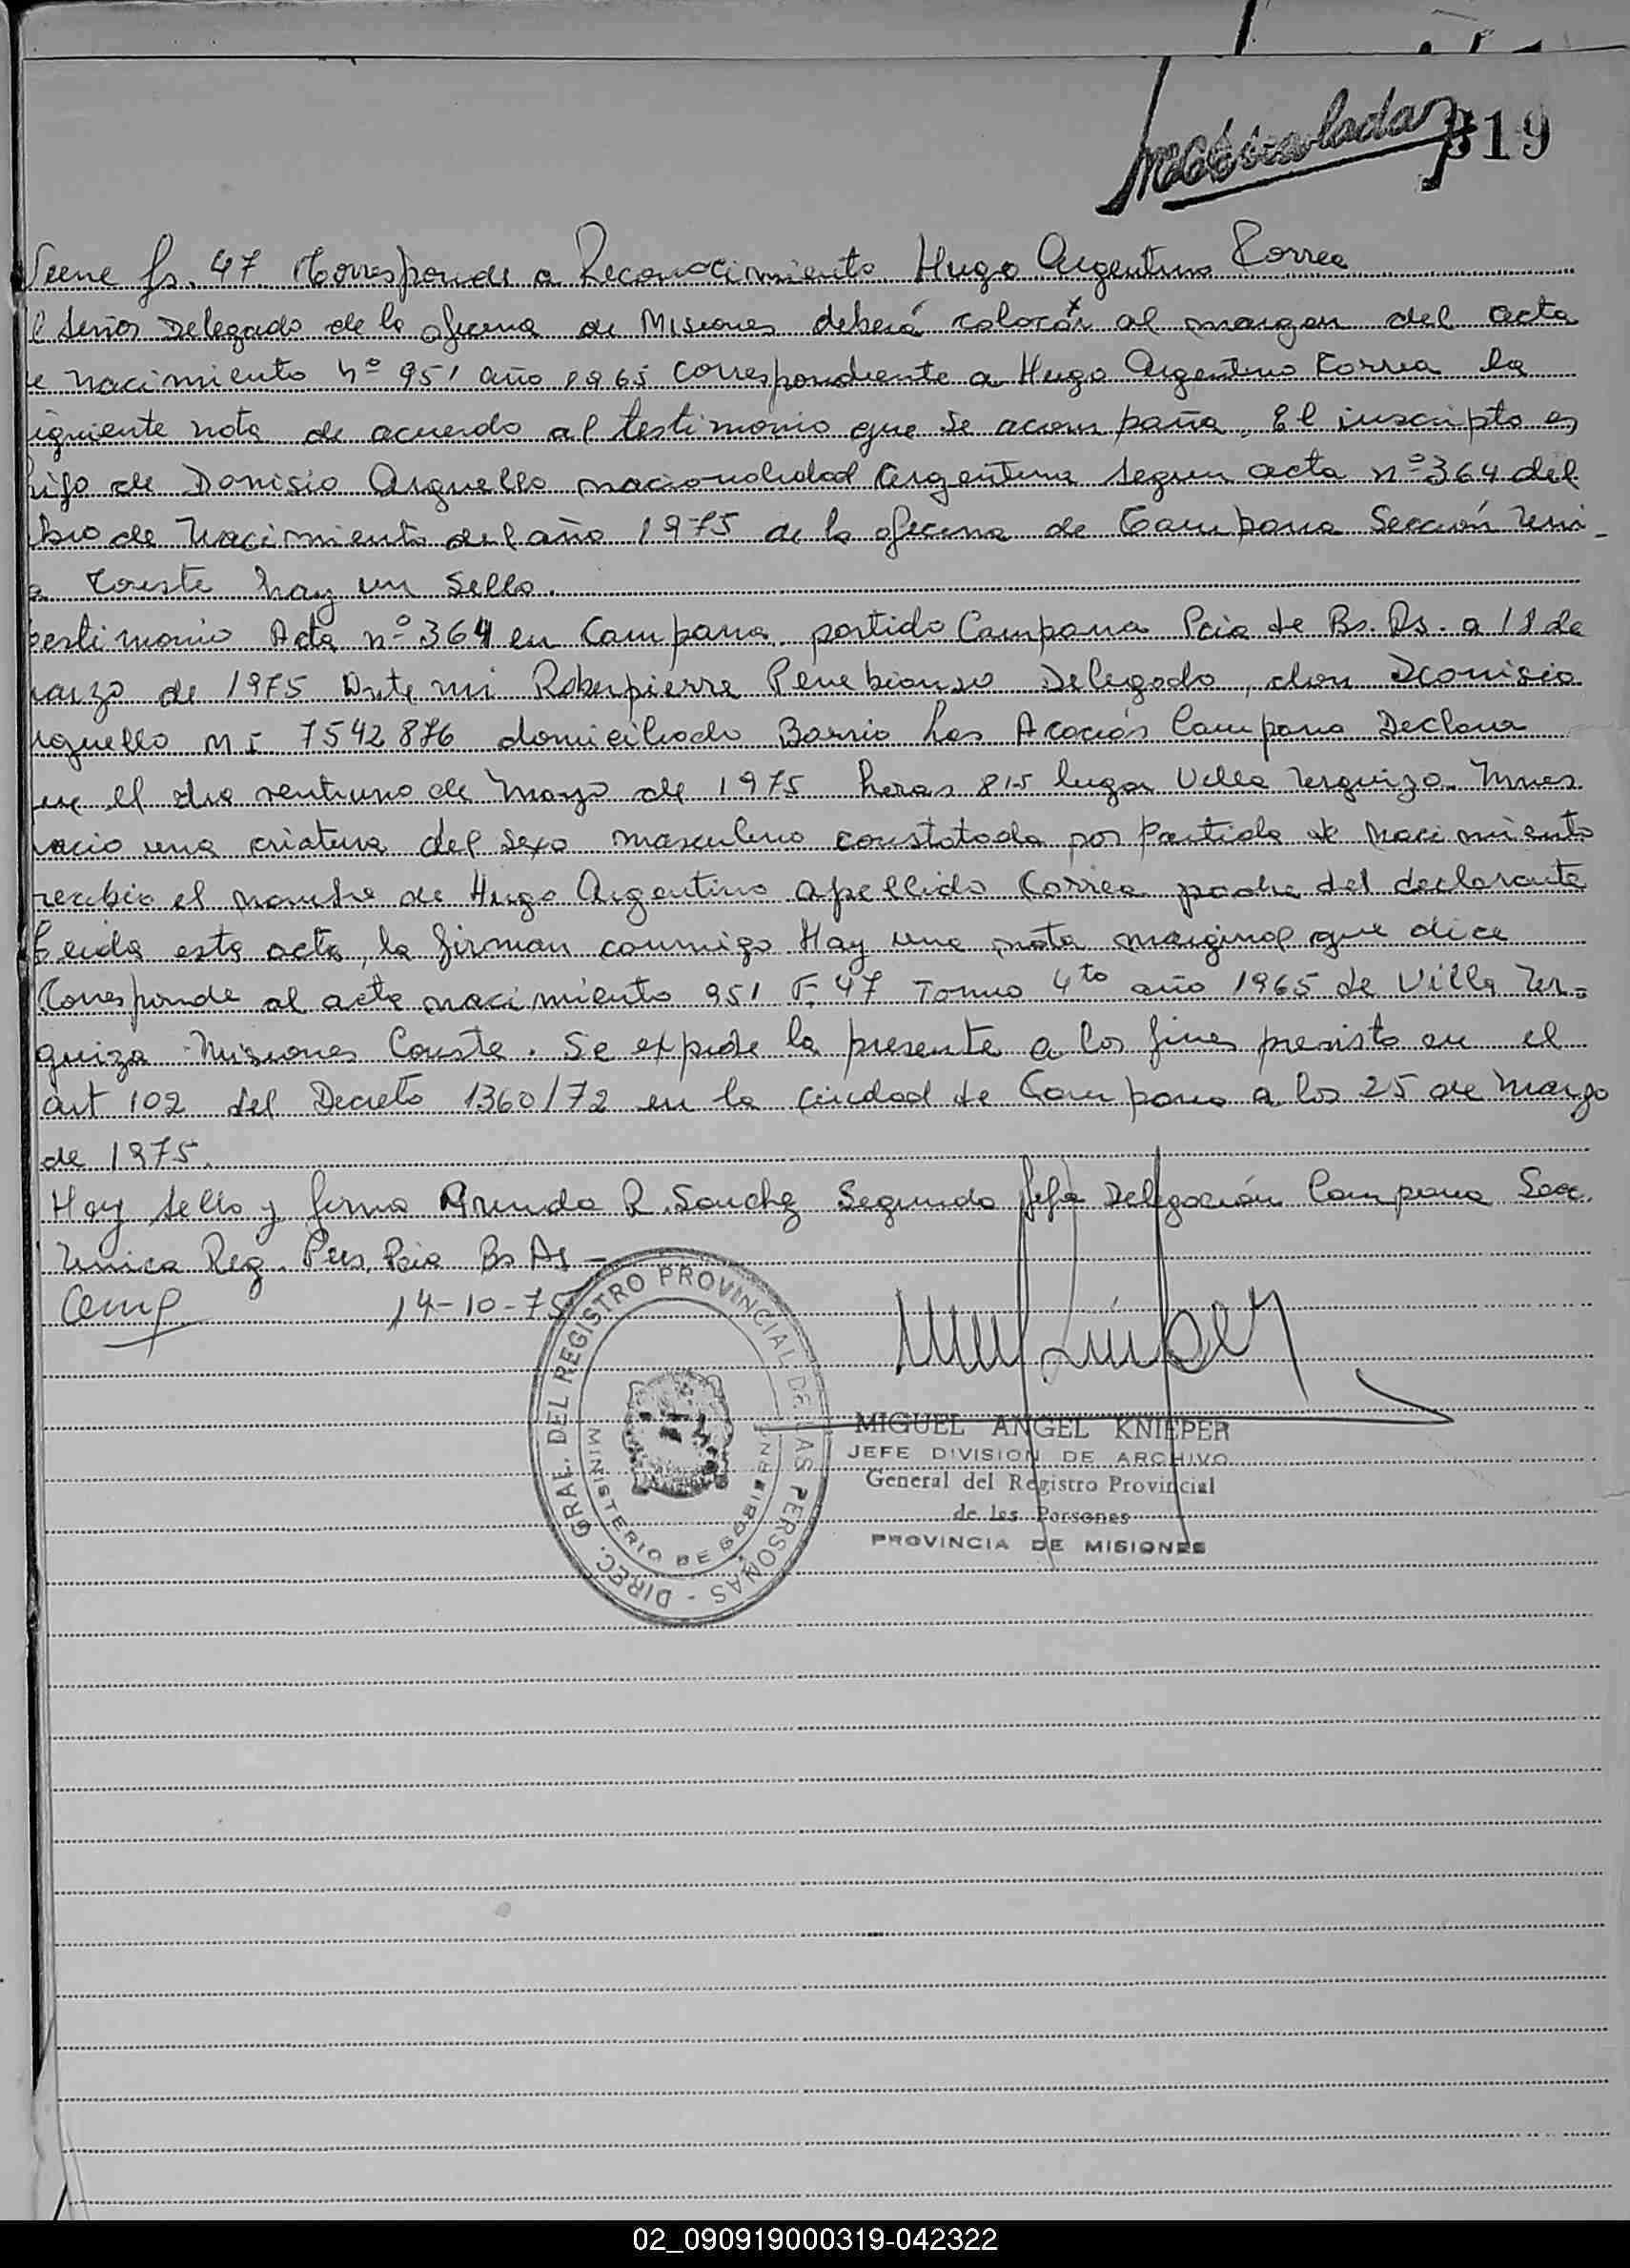 319
Viene fs. 47 Corresponde a Reconocimiento Hugo Argentino Correa
El Señor Delegado de la oficina de Misiones deberá colocar al margen del acta
de nacimiento nº 951 año 1965 correspondiente a Hugo Argentino Correa la
siguiente nota de acuerdo al testimonio que se acompaña. El inscripto es
hijo de Donisio Arguello nacionalidad Argentina segun acta nº 364 del
libro de Nacimiento del año 1975 de la oficina de Campana Sección Uni-
ca Conste hay un sello.
Testimonio Acta nº 364 en Campana partido Campana Pcia de Bs. As. a 18 de
marzo de 1975 Ante mi Roberpierre Delegado, don Dionisio
Arguello M I 7542876 domiciliado Barrio Las Acacias Campana Declara
que el dia ventiuno de Mayo de 1975 horas 815 lugar Villa Urquiza Mnes
nacio una criatura del sexo masculino constatada por Partida de Nacimiento
recibio el nombre de Hugo Argentino apellido Correa padre del declarante
Leida esta acta, la firman conmigo Hay una nota marginal que dice
Corresponde al acta nacimiento 951 F. 47 Tomo 4to año 1965 de Villa Ur-
quiza Misiones Conste. Se expide la presente a los fines previsto en el
art 102 del Decreto 1360/72 en la ciudad de Campana a los 25 de Marzo
de 1975.
Hay sello y firma R. Sanchez Segundo Jefe Delegación Campana Secc.
Unica Reg. Pers. Pcia Bs As -
14-10-75
DIREC. GRAL. DEL REGISTRO PROVINCIAL DE LAS PERSONAS -
MINISTERIO DE GOBIERNO
MIGUEL ANGEL KNIEPER
JEFE DIVISION DE ARCHIVO
General del Registro Provincial
de las Personas
PROVINCIA DE MISIONES
02_090919000319-042322